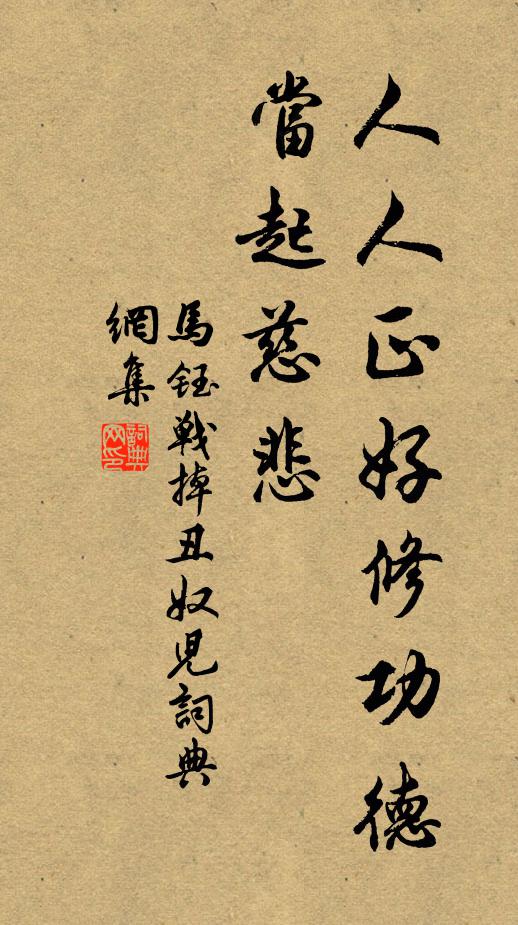 人人正好修功德
當起慈悲
馬鈺戰掉丑奴兒詞典
網集
詞典
网印